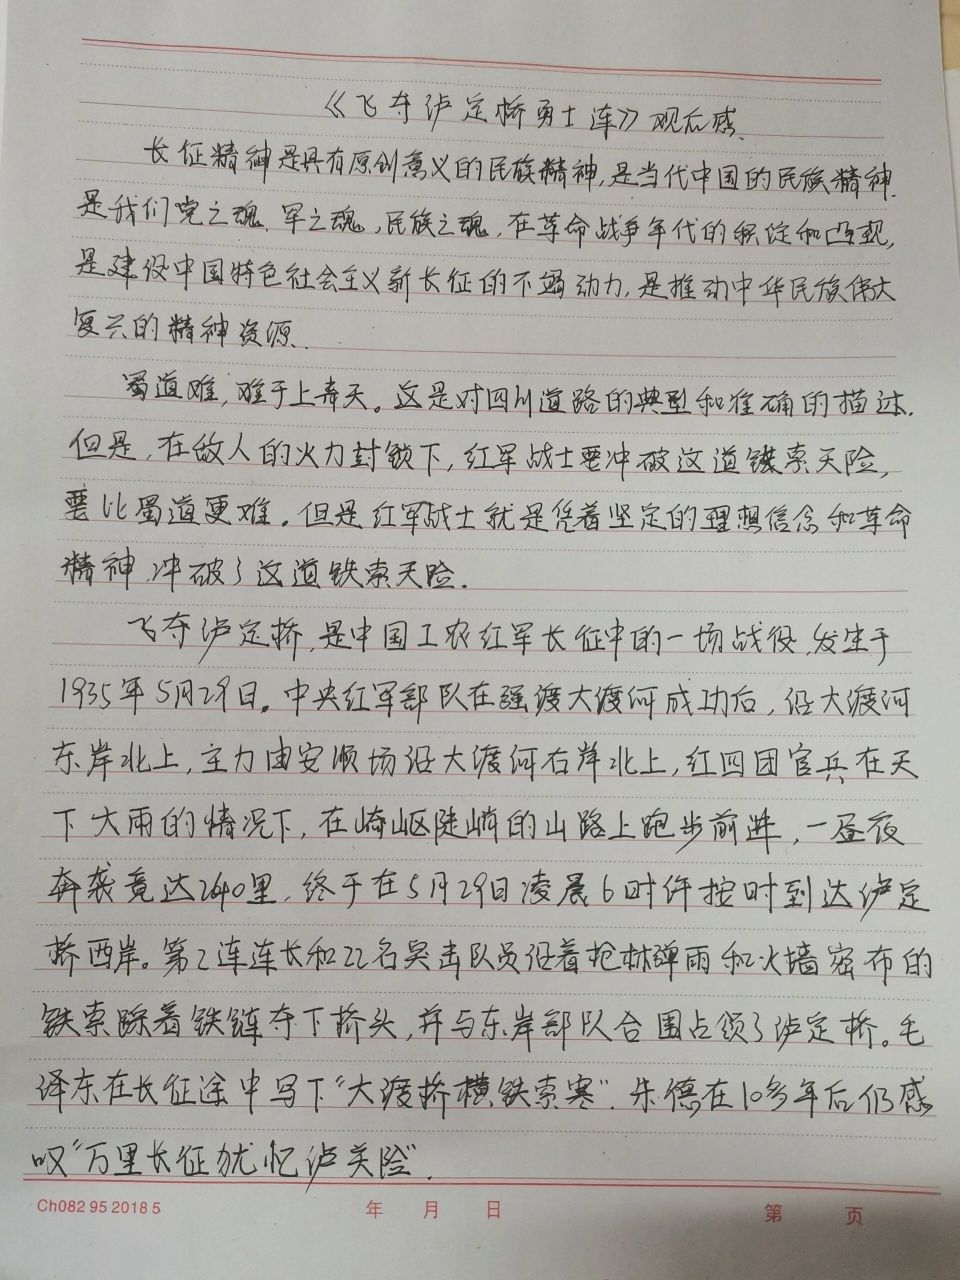 《飞夺泸定桥勇士连》观后感.
长征精神是具有原创意义的民族精神,是当代中国的民族精神.
是我们党之魂、军之魂,民族之魂,在革命战争年代的积淀和凸现,
是建设中国特色社会主义新长征的不竭动力,是推动中华民族伟大
复兴的精神资源.
蜀道难,难于上青天。这是对四川道路的典型和准确的描述.
但是,在敌人的火力封锁下,红军战士要冲破这道铁索天险,
要比蜀道更难。但是红军战士就是凭着坚定的理想信念和革命
精神,冲破了这道铁索天险.
飞夺泸定桥,是中国工农红军长征中的一场战役,发生于
1935年5月29日。中央红军部队在强渡大渡河成功后,沿大渡河
东岸北上,主力由安顺场沿大渡河右岸北上,红四团官兵在天
下大雨的情况下,在崎岖陡峭的山路上跑步前进,一昼夜
奔袭竟达240里,终于在5月29日凌晨6时许按时到达泸定
桥西岸。第2连连长和22名突击队员沿着枪林弹雨和火墙密布的
铁索踩着铁链夺下桥头,并与东岸部队合围占领了泸定桥。毛
泽东在长征途中写下"大渡桥横铁索寒".朱德在10多年后仍感
叹"万里长征犹忆泸关险".
Ch082 95 2018 5 年 月 日 第 页